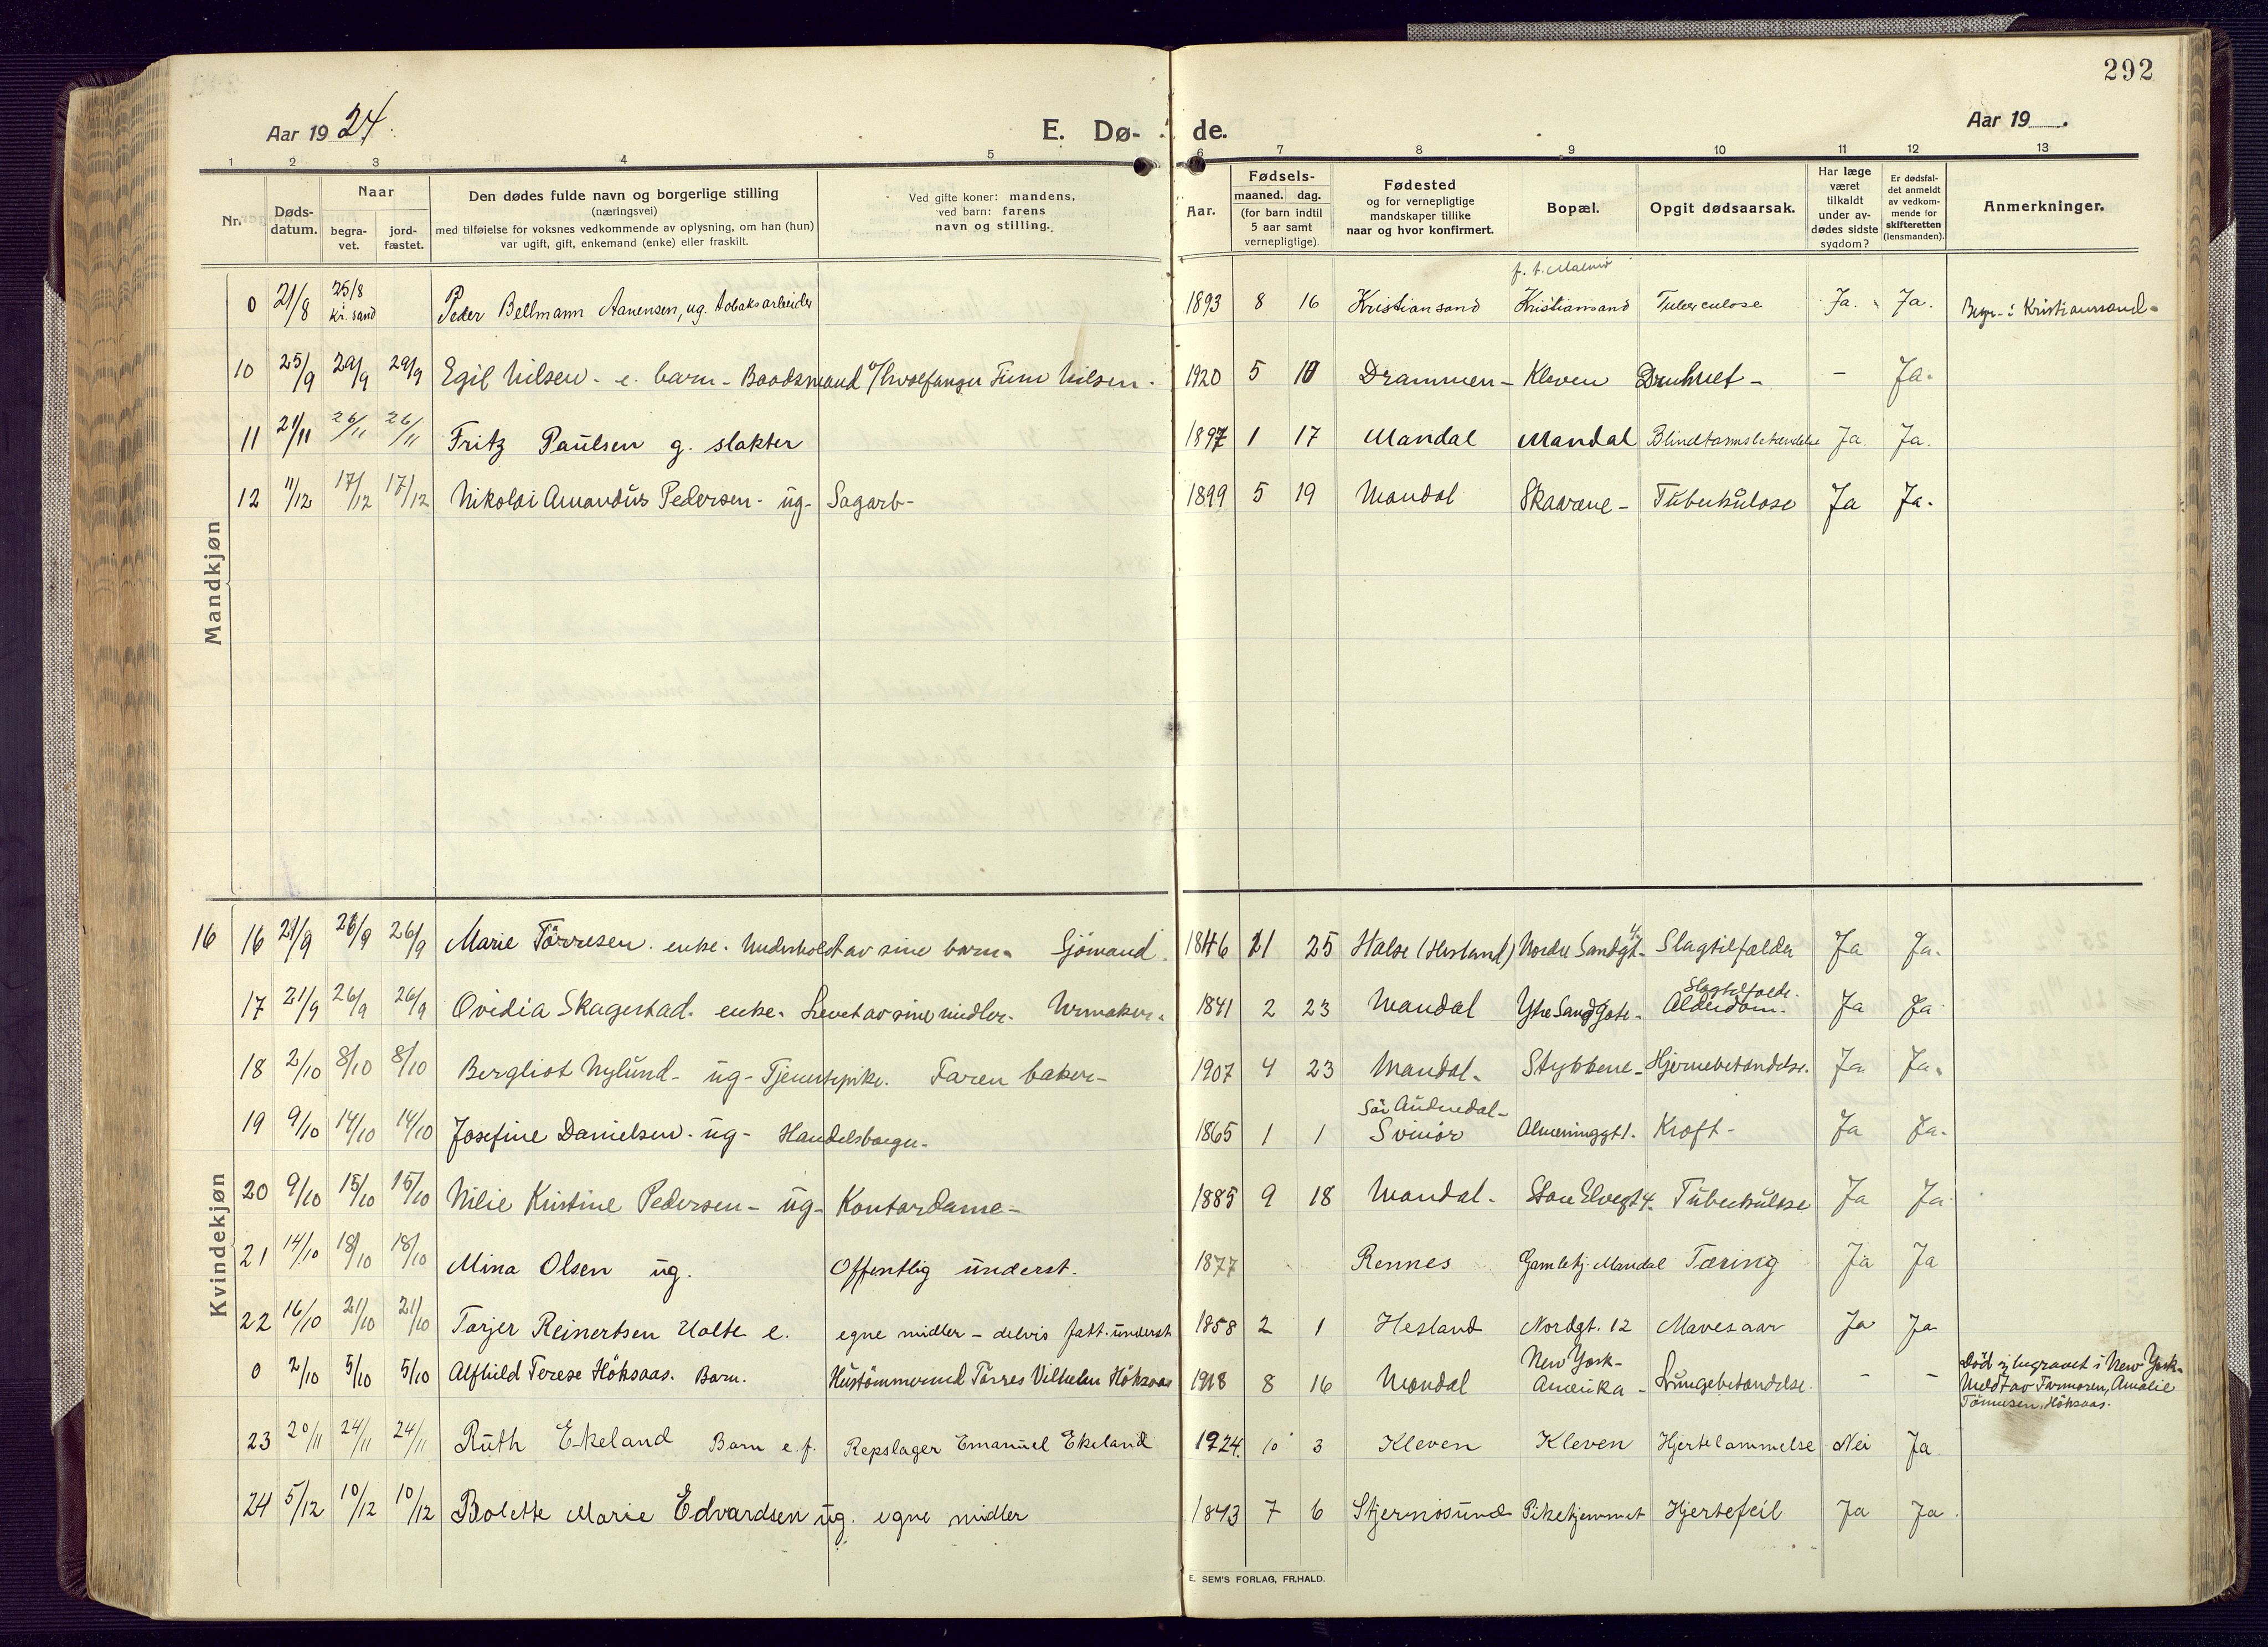 292
Aar 1924.
E. Dø-
de.
Aar 19
1 2 3 4 5 6 7 8 9 10 11 12 13
Nr.
Døds-
datum.
Naar
begra-
vet.
jord-
fæstet.
Den dødes fulde navn og borgerlige stilling
(næringsvei)
med tilføielse for voksnes vedkommende av oplysning, om han (hun)
var ugift, gift, enkemand (enke) eller fraskilt.
Ved gifte koner: mandens,
ved barn: farens
navn og stilling.
Aar.
Fødsels-
maaned. dag.
(for barn indtil
5 aar samt
vernepligtige).
Fødested
og for vernepligtige
mandskaper tillike
naar og hvor konfirmert.
Bopæl.
Opgit dødsaarsak.
Har læge
været
tilkaldt
under av-
dødes sidste
sygdom?
Er dødsfal-
det anmeldt
av vedkom-
mende for
skifteretten
(lensmanden).
Anmerkninger.
Mandkjøn
f. t. Malmö
0 21/8 25/8 Kr. sand Peder Bellmann Aanensen, ug. tobaksarbeider 1893 8 16 Kristiansand Kristiansand Tuberculose Ja. Ja. Begr. i Kristianssand
10 25/9 29/9 29/9 Egil Nilsen - e. barn - Baadsmand Nilsen. 1920 5 10 Drammen - Kleven Druknet - - Ja.
11 21/11 26/11 26/11 Fritz Paulsen g. slakter 1897 1 17 Mandal Mandal Blindtarmsbetændelse Ja. Ja.
12 11/12 17/12 17/12 Nikolai Amandus Pedersen - ug - Sagarb- 1899 5 19 Mandal Skaarene - Tuberkulose Ja Ja.
Kvindekjøn
16 16 21/9 26/9 26/9 Marie Törresen. enke. Underholdt av sine barn. Sjömand. 1846 21 25 Halse (Hesland) Nordre Sandgt. Slagtilfælde Ja Ja.
17 21/9 26/9 26/9 Ovidia Skagestad. enke. Levet av sine midler. Urmaker. 1841 2 23 Mandal Ytre Sandgate - Slagtilfælde. Alderdom. Ja Ja
18 2/10 8/10 8/10 Bergliot Nylund - ug - Tjenestepike. Faren baker - 1907 4 23 Mandal. Stybbene - Hjernebetændelse. Ja Ja.
19 9/10 14/10 14/10 Josefine Danielsen - ug - Handelsborger. 1865 1 1 Sör Audnedal - Svinör Almeninggt 1. Kræft - Ja Ja.
20 9/10 15/10 15/10 Nilie Kristine Pedersen - ug - Kontordame - 1885 9 18 Mandal - Store Elvegt 4. Tuberkulose Ja Ja
21 14/10 18/10 18/10 Mina Olsen ug. Offentlig underst. 1877 Rennes Gamlehj. Mandal Tæring Ja Ja
22 16/10 21/10 21/10 Tarjer Reinertsen Ualte e. egne midler - delvis fatt. underst 1858 2 1 Hesland Nordgt. 12 Mavesaar Ja Ja
0 2/10 5/10 5/10 Alfhild Terese Höksaas. Barn. Hustömmermd Törres Vilhelm Höksaas 1918 8 16 Mandal New York - Amerika - Lungebetændelse. - - Död og begravet i New York.
Meldt av Farmoren, Amalie
Tönnesen Höksaas.
23 20/11 24/11 24/11 Ruth Ekeland Barn e. f. Repslager Emanuel Ekeland 1924. 10 3 Kleven Kleven Hjertelammelse Nei Ja
24 5/12 10/12 10/12 Bolette Marie Edvardsen ug. egne midler 1843 7 6 Stjernösund Pikehjemmet Hjertefeil Ja Ja.
E. SEM'S FORLAG, FR.HALD.